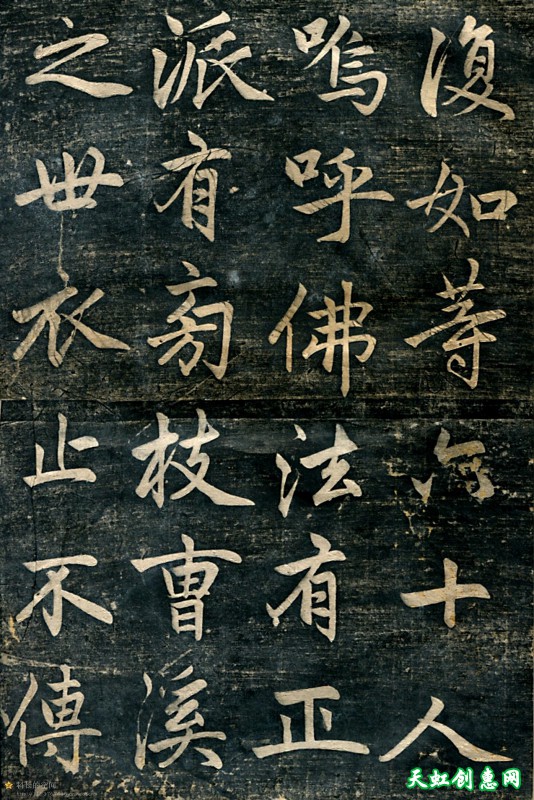 復如等十人
嗚呼佛法有正
派有旁枝曹溪
之世衣止不傳
天虹创惠网